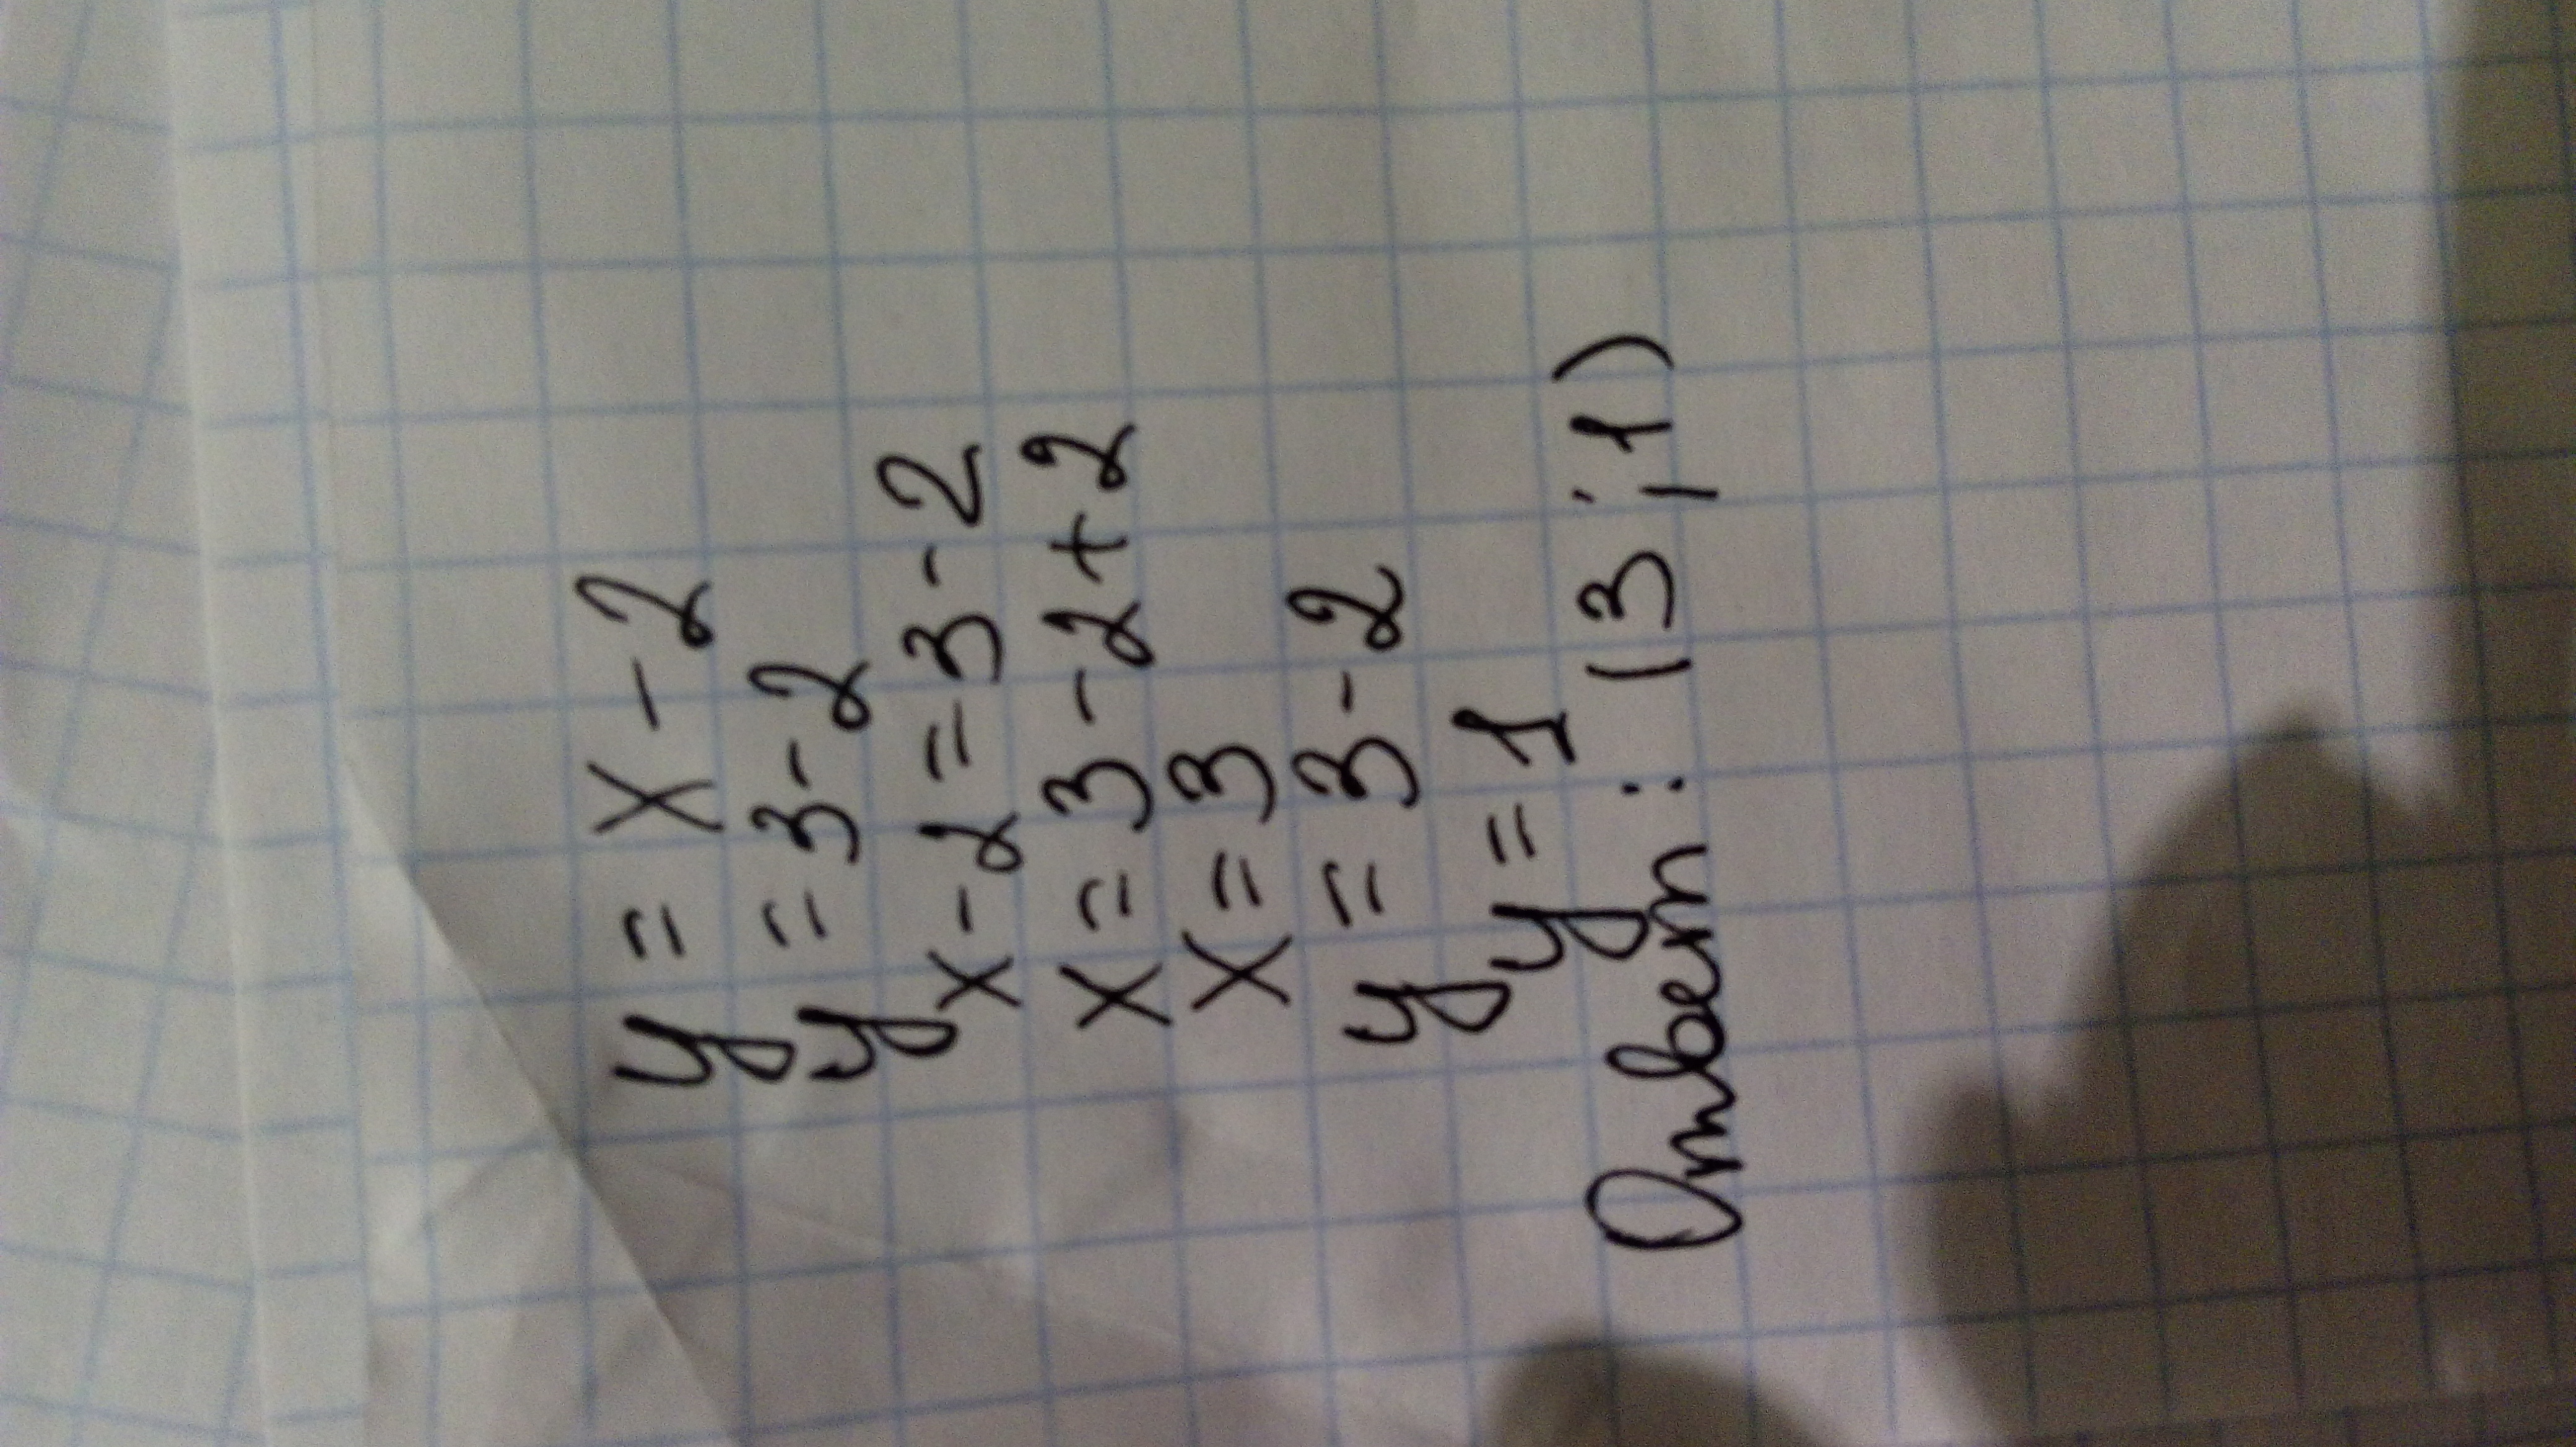 y = x - 2
y = 3 - 2
x - 2 = 3 - 2
x = 3 - 2 + 2
x = 3
y = 3 - 2
y = 1
Ответ: (3 ; 1)